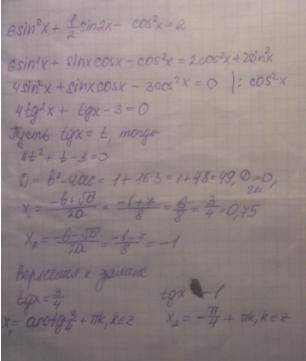 6sin²x + 1/2 sin2x - cos²x = 2
6sin²x + sinxcosx - cos²x = 2cos²x + 2sin²x
4sin²x + sinxcosx - 3cos²x = 0 | : cos²x
4tg²x + tgx - 3 = 0
Пусть tgx = t, тогда
4t² + t - 3 = 0
D = b² - 4ac = 1 + 16·3 = 1 + 48 = 49, D > 0, 2к.
x₁ = (-b+√D)/2a = (-1+7)/8 = 6/8 = 3/4 = 0,75
x₂ = (-b-√D)/2a = (-1-7)/8 = -1
Вернемся к замене
tgx = 3/4 tgx -1
x₁ = arctg 3/4 + πk, k∈z x₂ = -π/4 + πk, k∈z